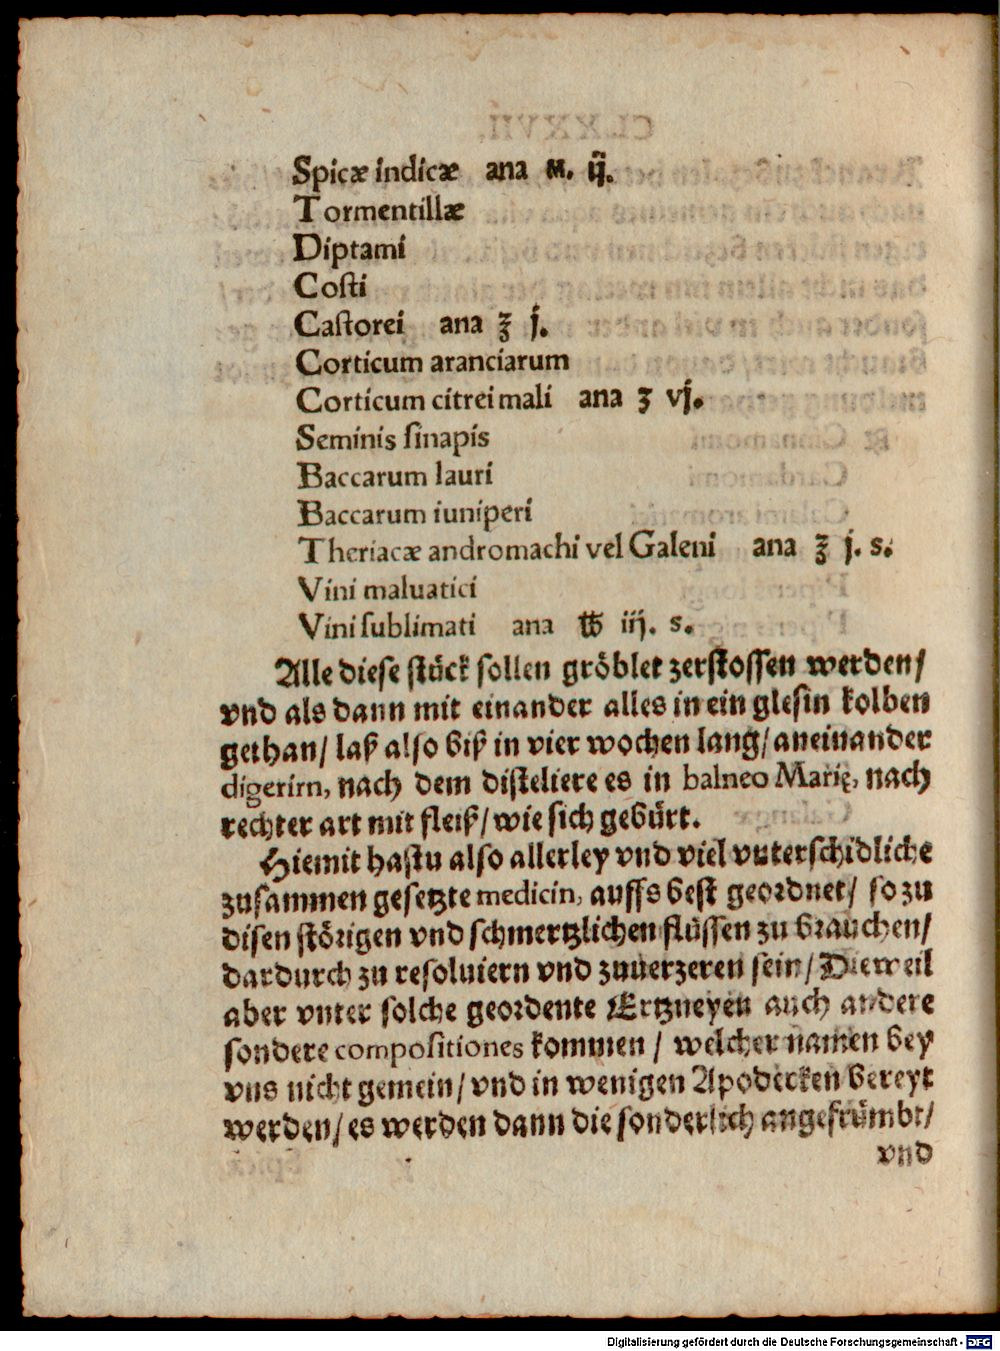 Spicæ indicæ ana M. ij.
Tormentillæ
Diptami
Costi
Castorei ana ℥ j.
Corticum aranciarum
Corticum citrei mali ana ʒ vj.
Seminis sinapis
Baccarum lauri
Baccarum iuniperi
Theriacæ andromachi vel Galeni ana ℥ j. s.
Vini maluatici
Vini sublimati ana ℔ iij. s.
Alle diese stück sollen gröblet zerstossen werden/
vnd als dann mit einander alles in ein glesin kolben
gethan/ laß also biß in vier wochen lang/ aneinander
digerirn, nach dem disteliere es in balneo Marię, nach
rechter art mit fleiß/ wie sich gebürt.
Hiemit hastu also allerley vnd viel vnterschidliche
zusammen gesetzte medicin, auffs best geordnet/ so zu
disen störigen vnd schmertzlichen flüssen zu brauchen/
dardurch zu resoluiern vnd zuuerzeren sein/ Dieweil
aber vnter solche geordente Ertzneyen auch andere
sondere compositiones kommen/ welcher namen bey
vns nicht gemein/ vnd in wenigen Apodecken bereyt
werden/ es werden dann die sonderlich angefrümbt/
vnd
Digitalisierung gefördert durch die Deutsche Forschungsgemeinschaft - DFG